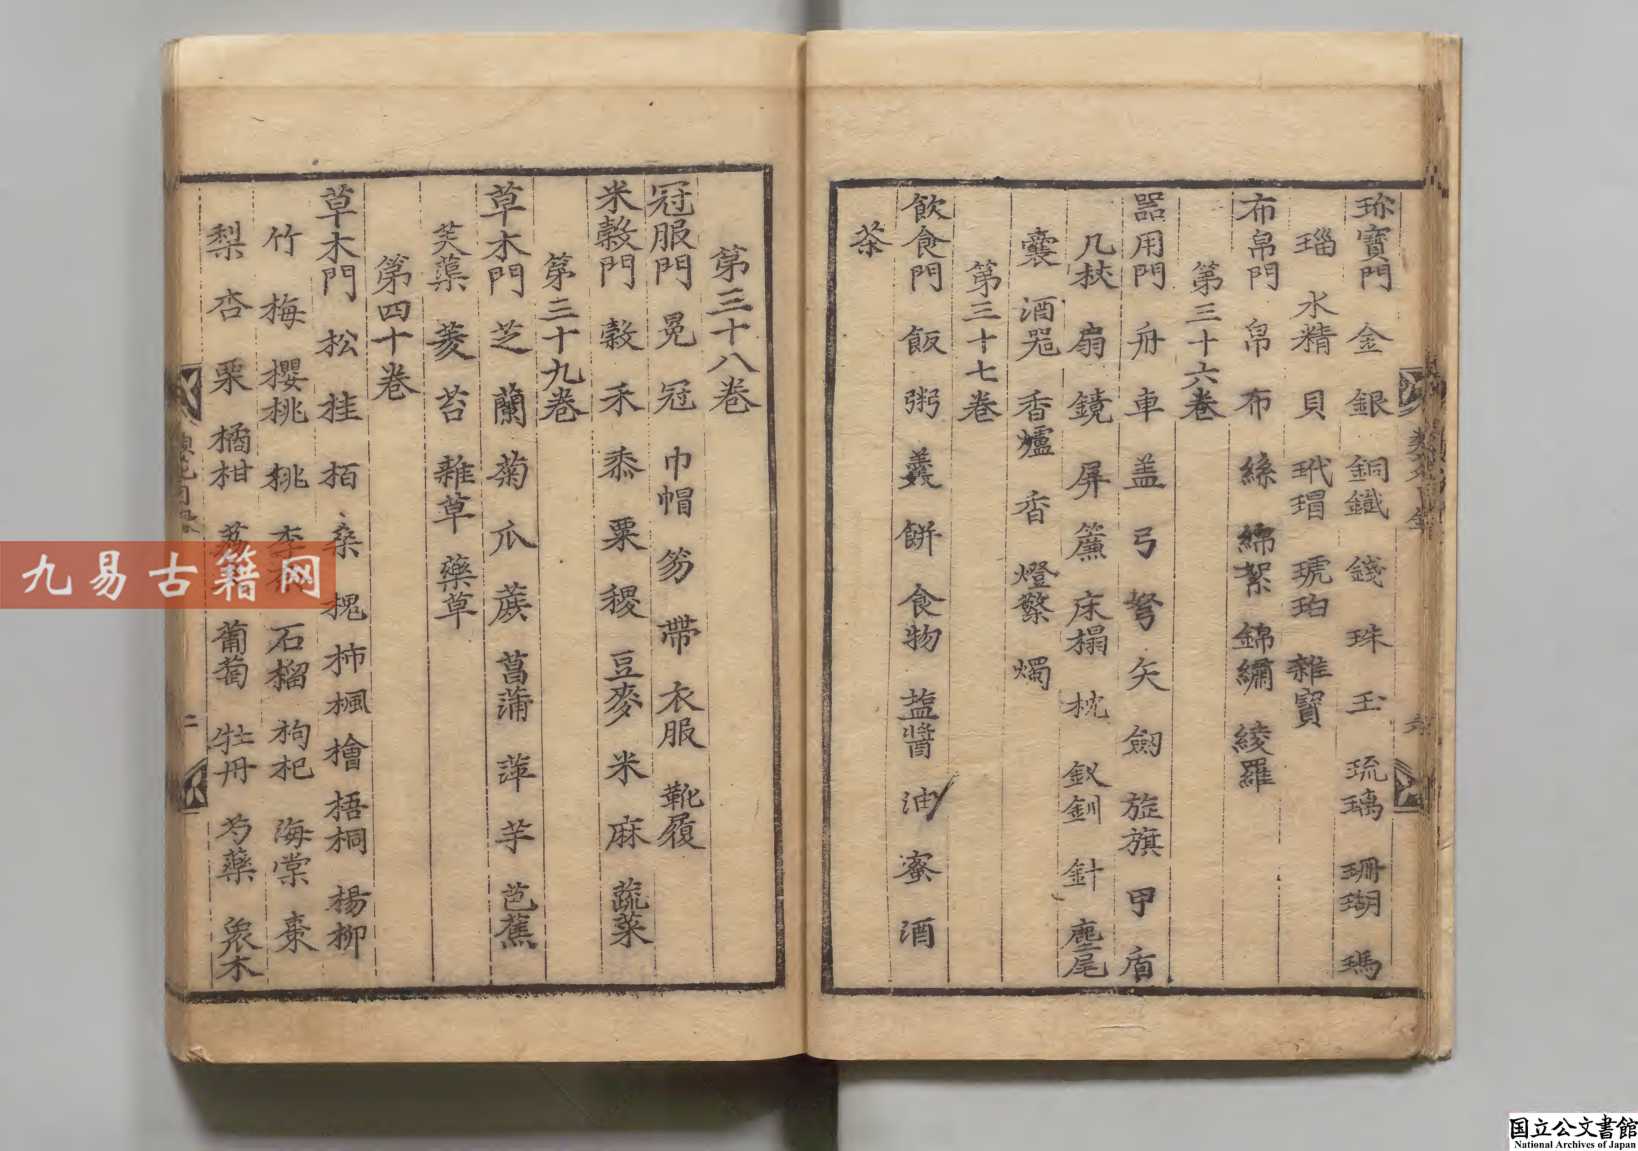 珎寳門 金 銀 銅鐵 錢 珠 玉 琉璃 珊瑚 瑪
瑙 水精 貝 玳瑁 琥珀 雜寳
布帛門 帛 布 絲 綿絮 錦繡 綾羅
第三十六卷
噐用門 舟 車 盖 弓 弩 矢 劒 旌旗 甲 盾
几杖 扇 鏡 屏 簾 床榻 枕 釵釧 針 麈尾
囊 酒噐 香爐 香 燈檠 燭
第三十七卷
飲食門 飯 粥 羹 餅 食物 塩醬 油 蜜 酒
茶
第三十八卷
冠服門 冕 冠 巾帽 笏 帶 衣服 靴履
米穀門 穀 禾 黍 粟 稷 豆麥 米 麻 蔬菜
第三十九卷
草木門 芝 蘭 菊 爪 蔟 菖蒲 萍 芋 芭蕉
芙蕖 菱 苔 雜草 藥草
第四十卷
草木門 松 桂 栢 桑 槐 柿 楓 檜 梧桐 楊柳
竹 梅 櫻桃 桃 李 石榴 枸杞 海棠 棗
梨 杏 栗 橘柑 荔 葡萄 牡丹 芍藥 衆木
二
九易古籍网
国立公文書館
National Archives of Japan